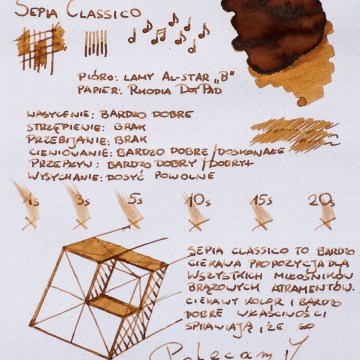 SEPIA CLASSICO
PIÓRO: LAMY AL-STAR „B"
PAPIER: RHODIA DOTPAD
NASYCENIE: BARDZO DOBRE
STRZĘPIENIE: BRAK
PRZEBIJANIE: BRAK
CIENIOWANIE: BARDZO DOBRE/DOSKONAŁE
PRZEPŁYW: BARDZO DOBRY/DOBRY+
WYSYCHANIE: DOSYĆ POWOLNE
1s 3s 5s 10s 15s 20s
SEPIA CLASSICO TO BARDZO
CIEKAWA PROPOZYCJA DLA
WSZYSTKICH MIŁOŚNIKÓW
BRĄZOWYCH ATRAMENTÓW.
CIEKAWY KOLOR I BARDZO
DOBRE WŁAŚCIWOŚCI
SPRAWIAJĄ, ŻE GO
Polecam!